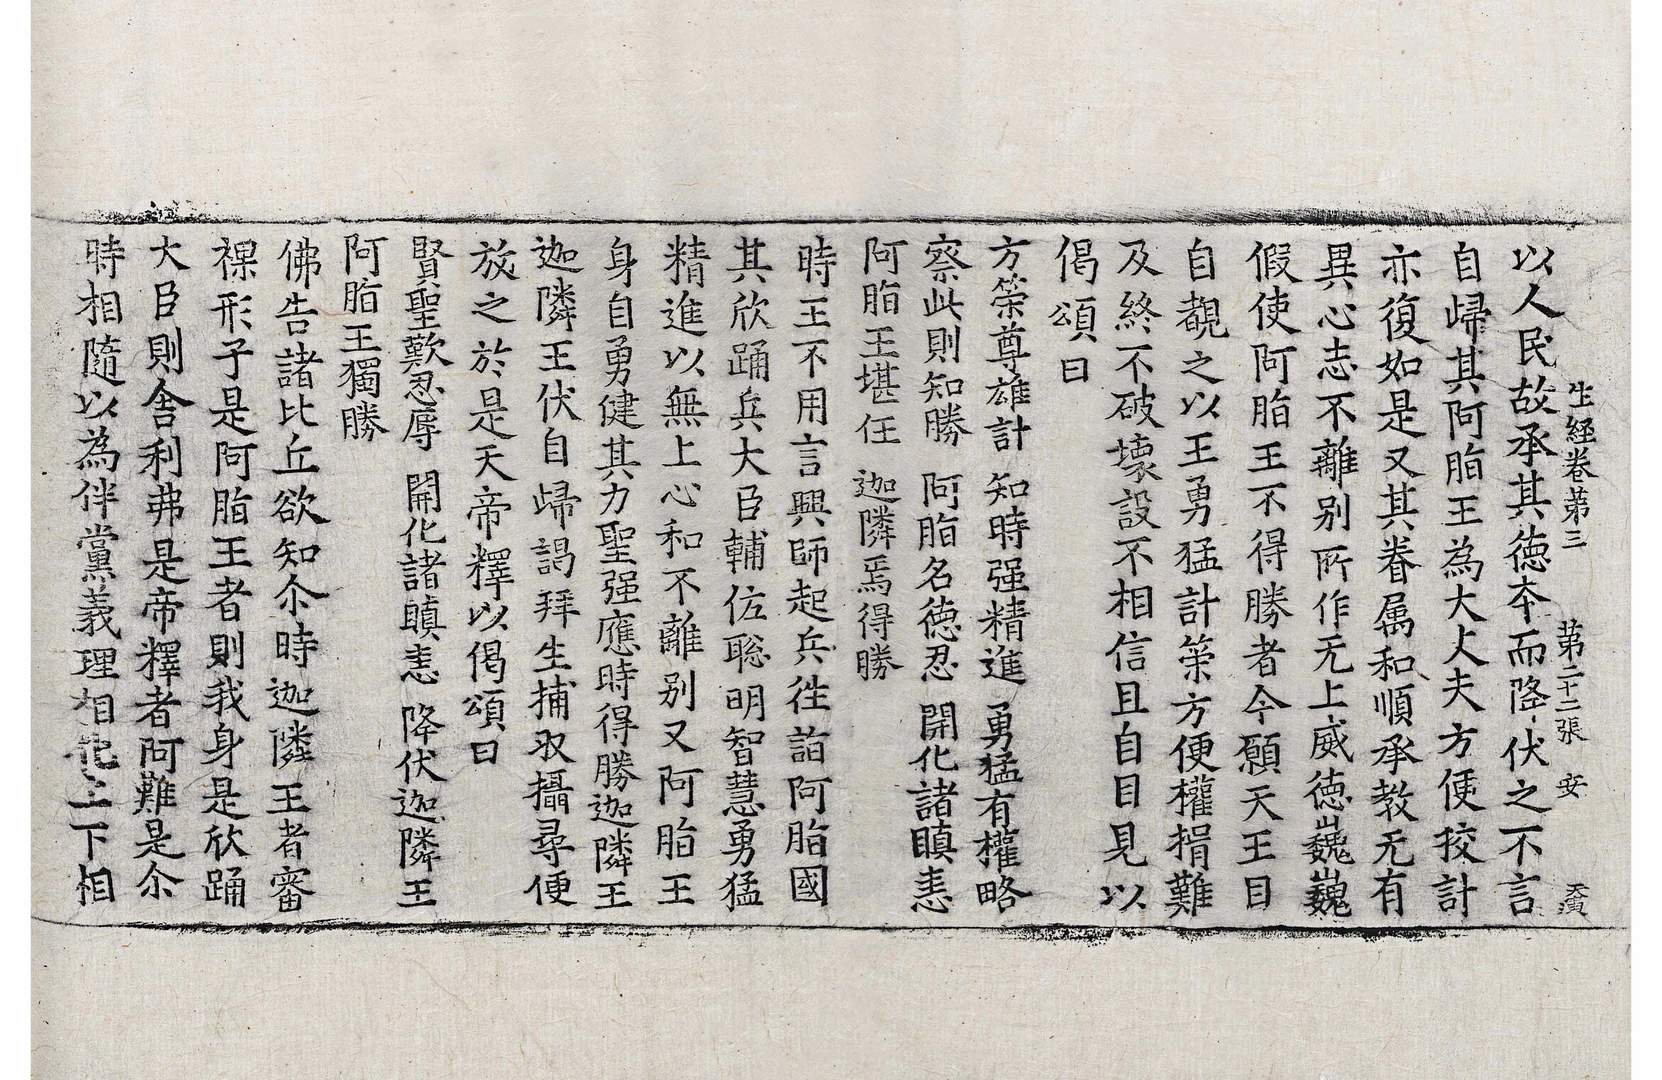 生経卷苐三 苐二十二張 安 天演
以人民故承其徳夲而降伏之不言
自歸其阿脂王為大丈夫方便挍計
亦復如是又其眷属和順承教无有
異心志不離别所作无上威徳巍巍
假使阿脂王不得勝者今願天王目
自覩之以王勇猛計䇿方便權捐難
及終不破壊設不相信且自目見以
偈頌曰
方䇿尊雄計 知時强精進 勇猛有權略
察此則知勝 阿脂名德忍 開化諸瞋恚
阿脂王堪任 迦隣焉得勝
時王不用言興師起兵徃詣阿脂國
其欣踊兵大臣輔佐聡明智慧勇猛
精進以無上心和不離别又阿脂王
身自勇健其力聖强應時得勝迦隣王
迦隣王伏自歸謁拜生捕取攝尋便
放之於是天帝釋以偈頌曰
賢聖歎忍辱 開化諸瞋恚 降伏迦隣王
阿脂王獨勝
佛告諸比丘欲知尒時迦隣王者審
裸形子是阿脂王者則我身是欣踊
大臣則舍利弗是帝釋者阿難是尒
時相隨以為伴黨義理相化上下相